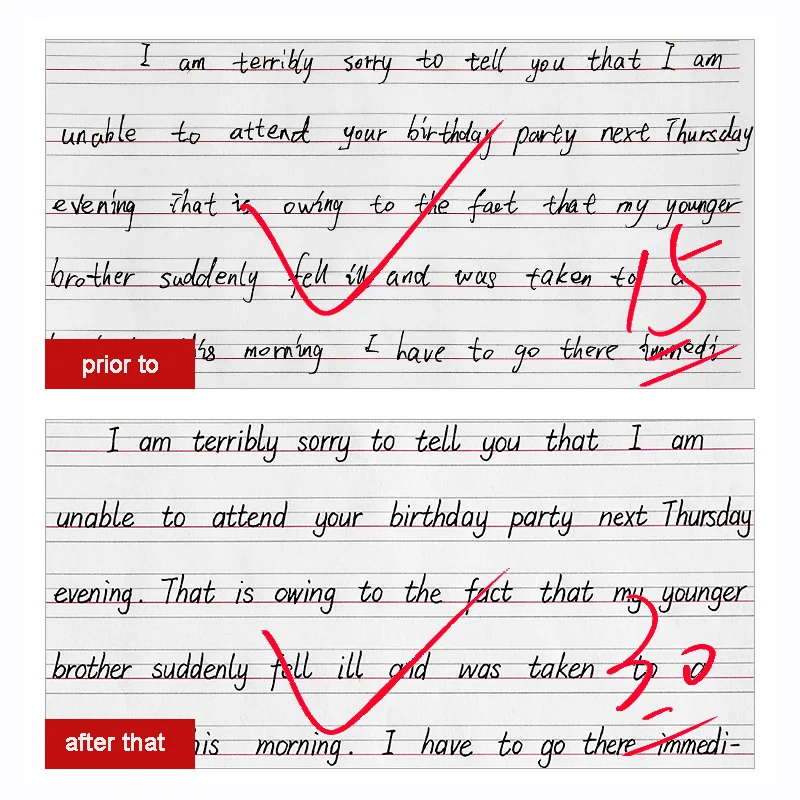 I am terribly sorry to tell you that I am
unable to attend your birthday party next Thursday
evening That is owing to the fact that my younger
brother suddenly fell ill and was taken to a
this morning I have to go there immedi
15
prior to
I am terribly sorry to tell you that I am
unable to attend your birthday party next Thursday
evening. That is owing to the fact that my younger
brother suddenly fell ill and was taken to a
his morning. I have to go there immedi-
30
after that